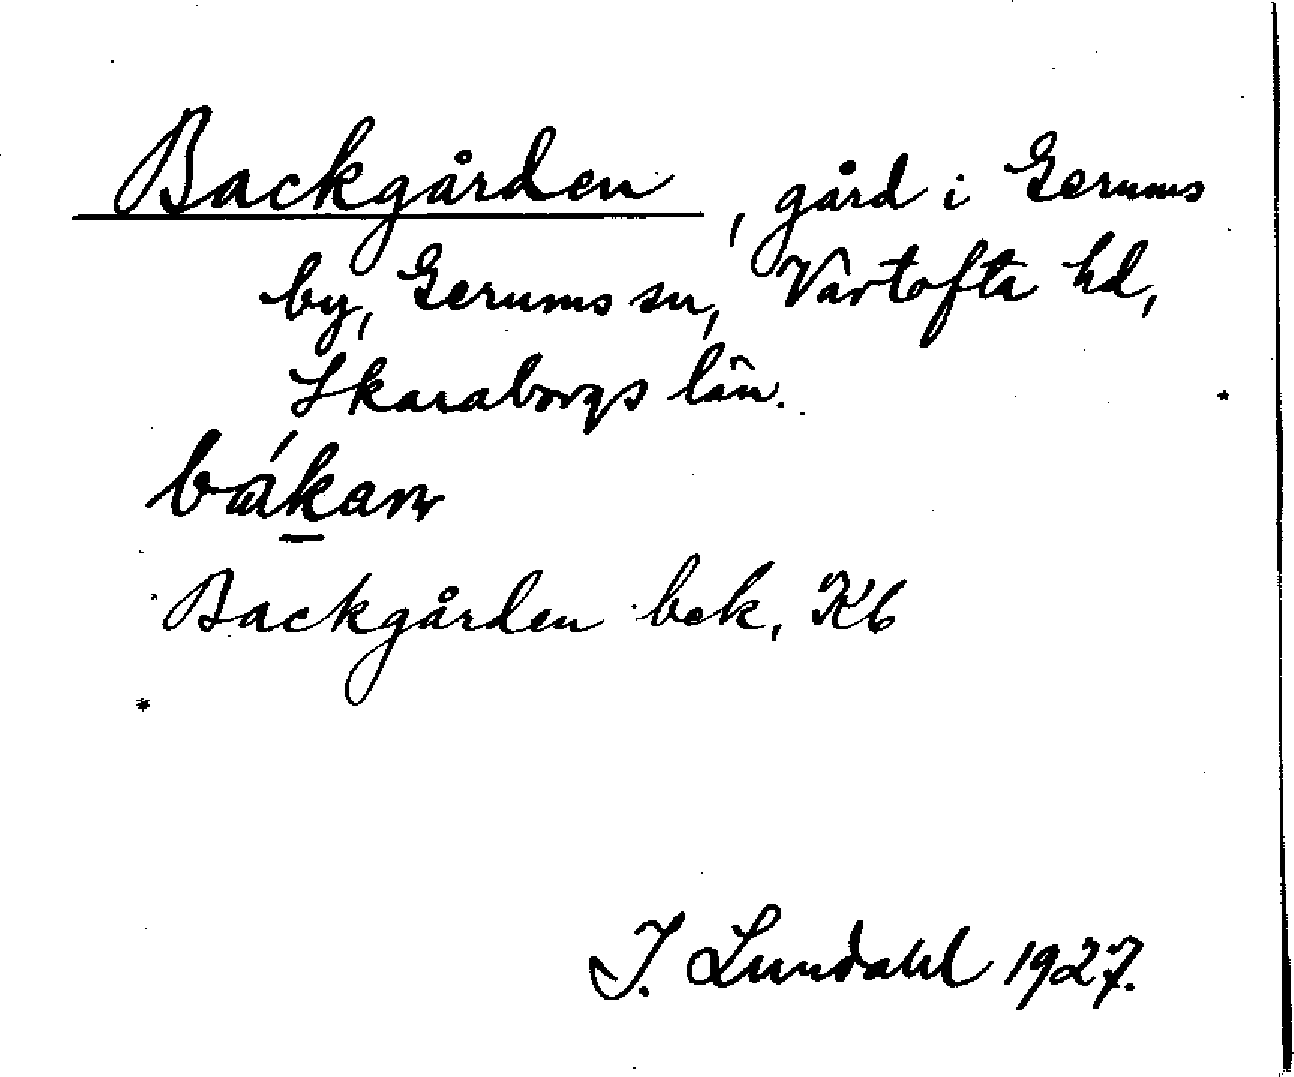 Backgården, gård i Gerums
by, Gerums sn, Vartofta hd,
Skaraborgs län.
bákan
Backgården bek, Kb
I. Lundahl 1927.